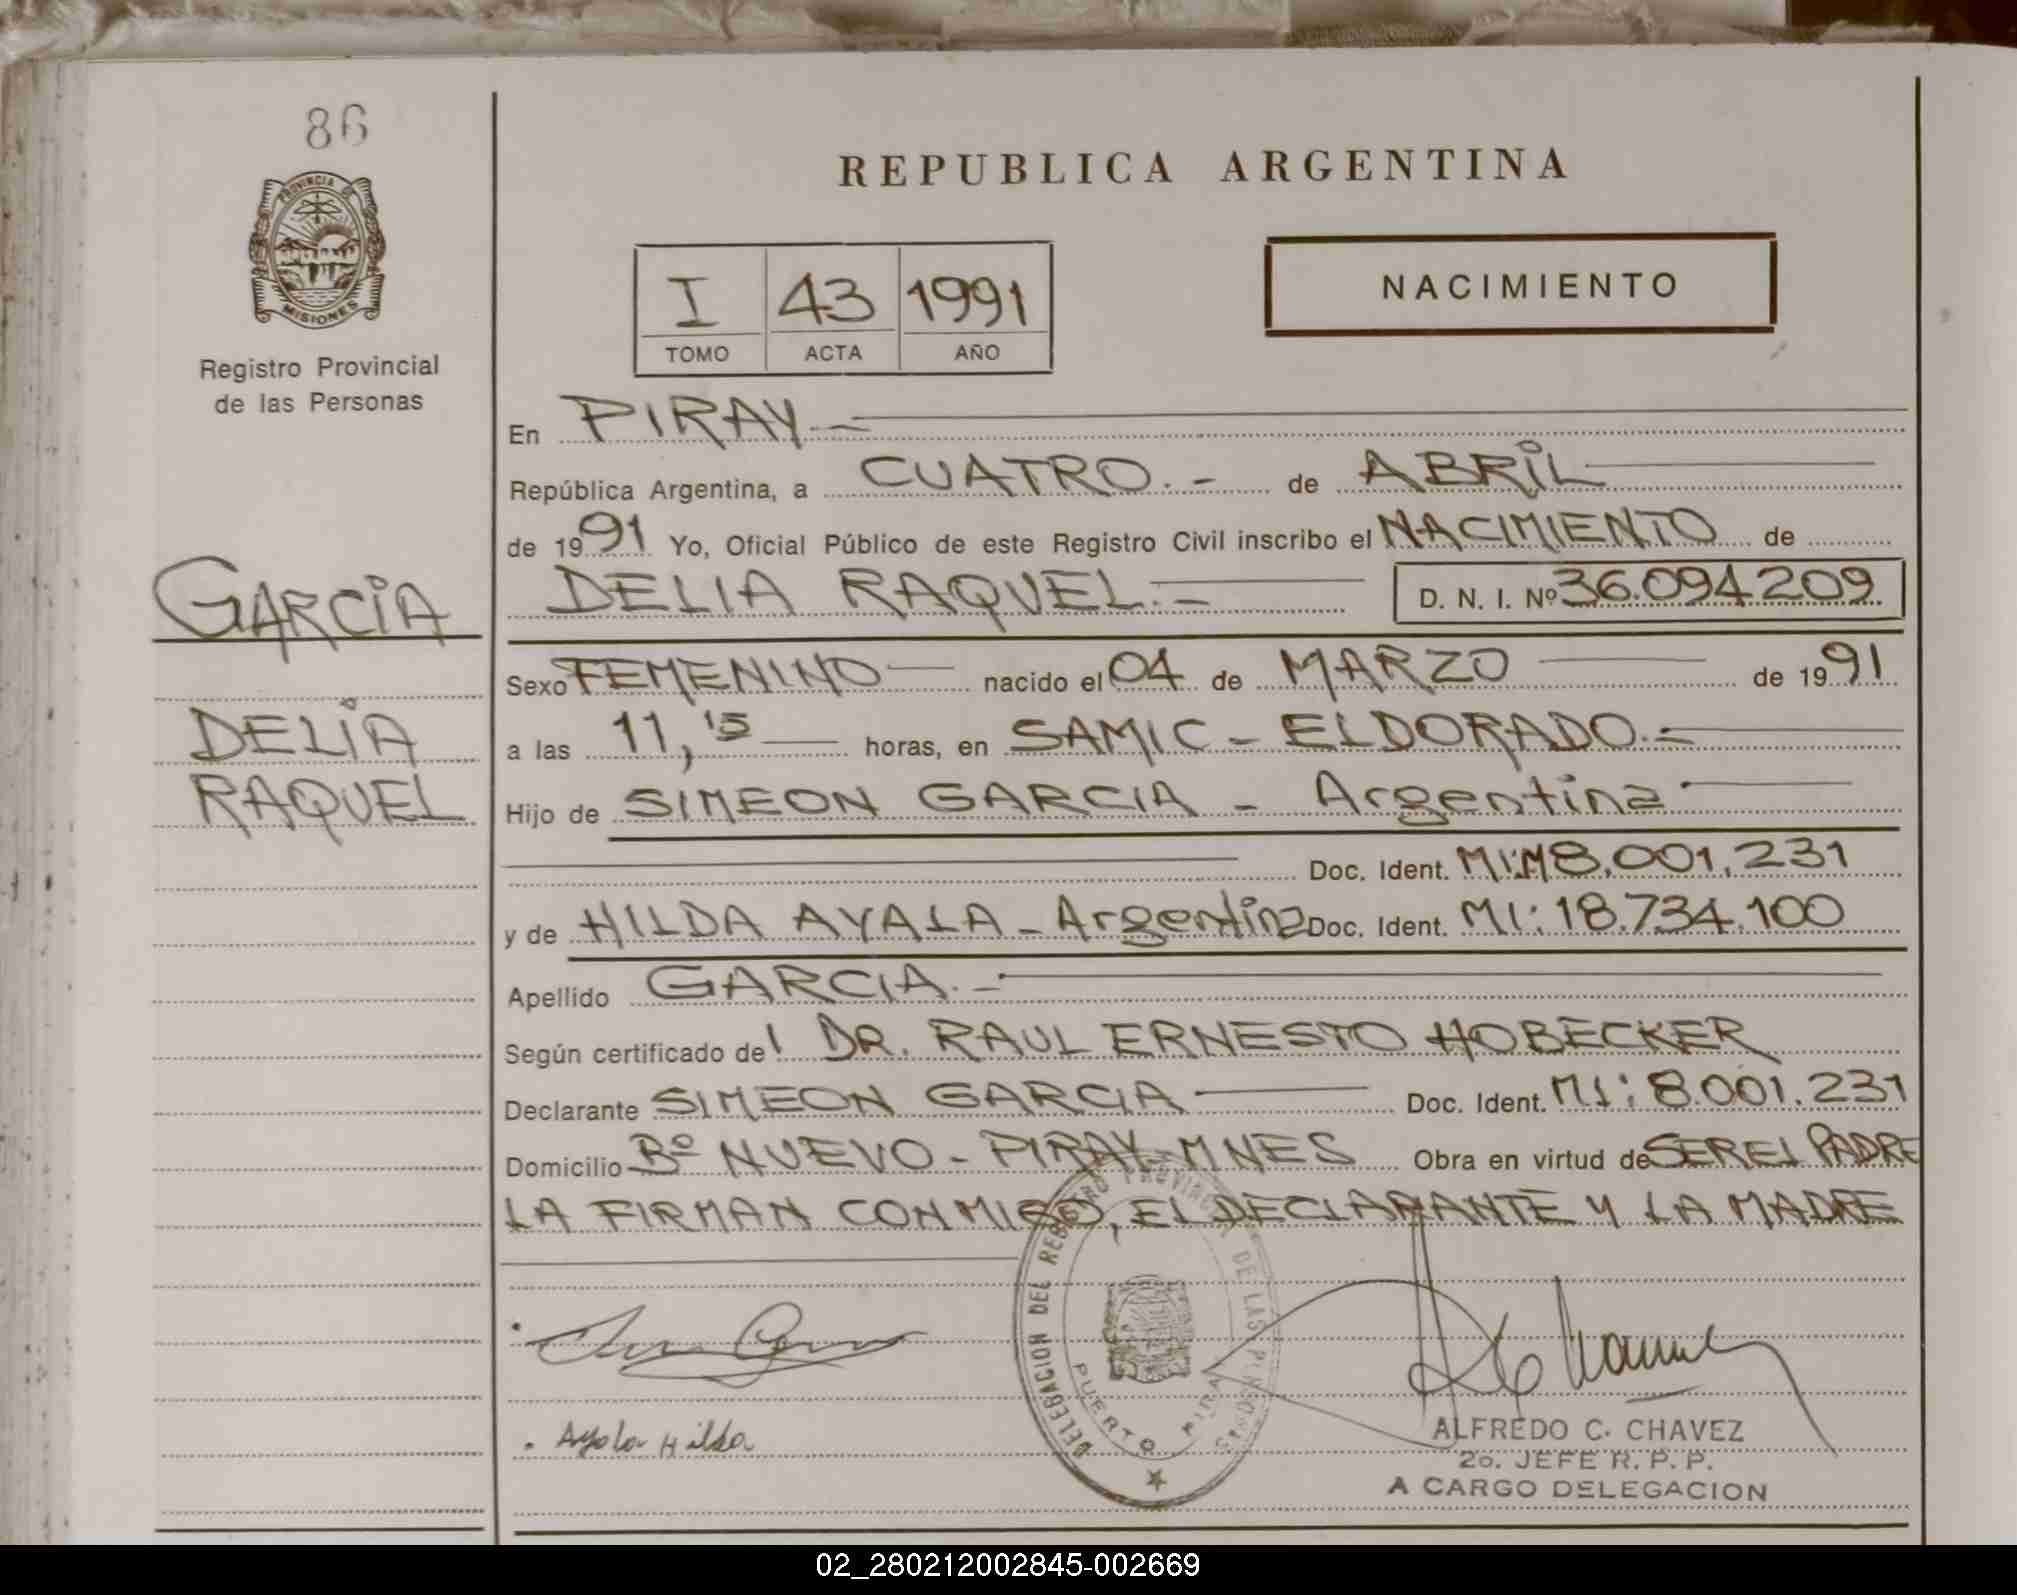 86
PROVINCIA DE
MISIONES
Registro Provincial
de las Personas
GARCIA
DELIA
RAQUEL
REPUBLICA ARGENTINA
I 43 1991
TOMO ACTA AÑO
NACIMIENTO
En PIRAY.—
República Argentina, a CUATRO.- de ABRIL
de 1991 Yo, Oficial Público de este Registro Civil inscribo el NACIMIENTO de
DELIA RAQUEL.— D. N. I. Nº 36.094.209
Sexo FEMENINO— nacido el 04 de MARZO — de 1991
a las 11,15 — horas, en SAMIC - ELDORADO.-
Hijo de SIMEON GARCIA - Argentina
Doc. Ident. MI:M8.001.231
y de HILDA AYALA - Argentina Doc. Ident. MI: 18.734.100
Apellido GARCIA.-
Según certificado del DR. RAUL ERNESTO HOBECKER
Declarante SIMEON GARCIA — Doc. Ident. MI: 8.001.231
Domicilio Bº NUEVO - PIRAY-MNES Obra en virtud de SER EL PADRE
LA FIRMAN CONMIGO, EL DECLARANTE Y LA MADRE
DELEGACION DEL REGISTRO PROVINCIAL DE LAS PERSONAS
PUERTO PIRAY
Ayala Hilda
ALFREDO C. CHAVEZ
2o. JEFE R. P. P.
A CARGO DELEGACION
02_280212002845-002669